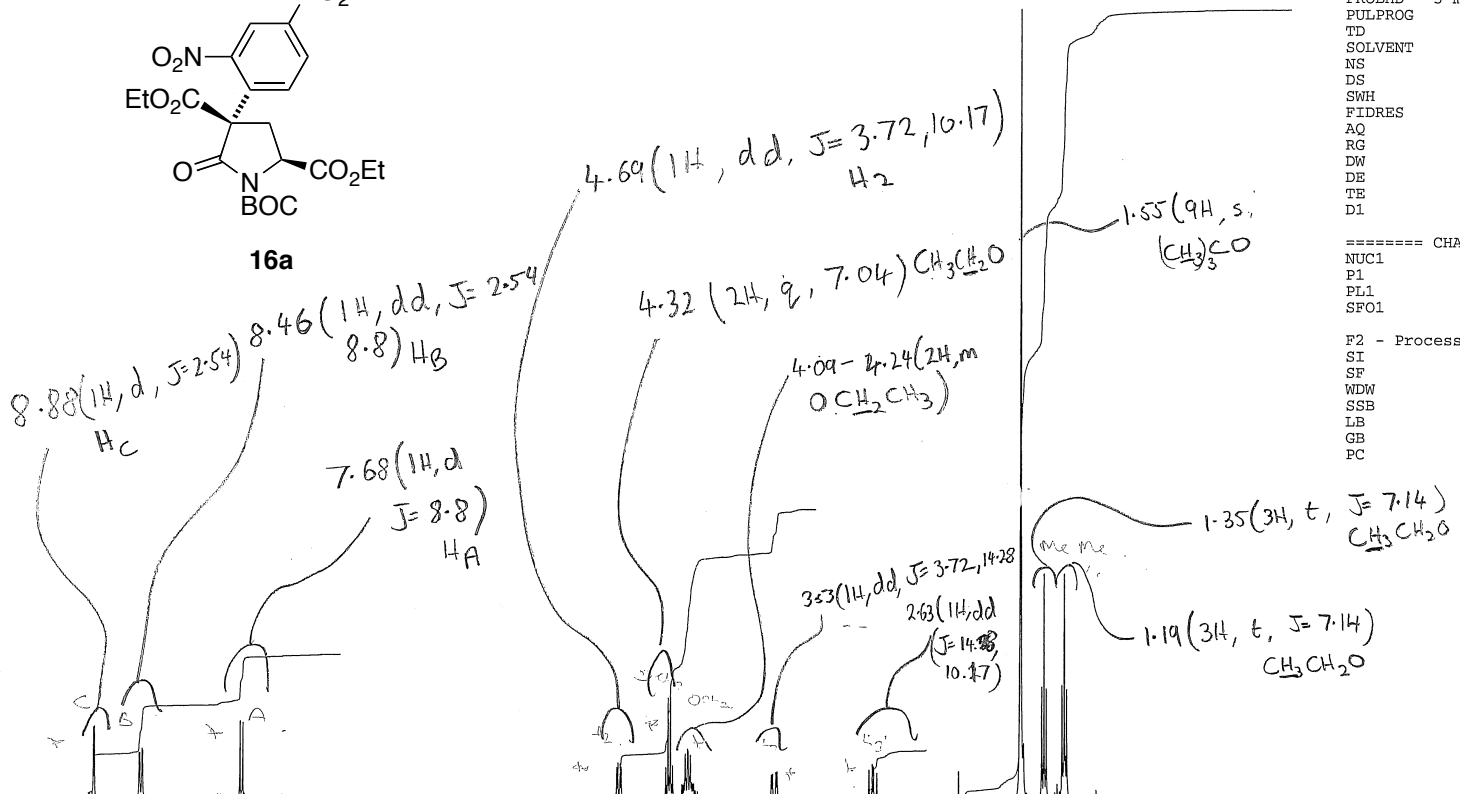 O₂N
EtO₂C
O
N
BOC
CO₂Et
16a
8.88(1H, d, J=2.54)
H_C
8.46(1H, dd, J=2.54
8.8) H_B
7.68(1H, d
J=8.8)
H_A
4.69(1H, dd, J=3.72,10.17)
H2
4.32 (2H, q, 7.04) CH₃CH₂O
4.09-4.24(2H,m
OCH₂CH₃)
3.53(1H,dd, J=3.72,14.28
2.63(1H,dd
10.17)
1.55(9H, s,
(CH₃)₃CO
me me
1.35(3H, t, J=7.14)
CH₃CH₂O
1.19(3H, t, J=7.14)
CH₃CH₂O
C
B
A
PULPROG
TD
SOLVENT
NS
DS
SWH
FIDRES
AQ
RG
DW
DE
TE
D1
======== CHA
NUC1
P1
PL1
SFO1
F2 - Process
SI
SF
WDW
SSB
LB
GB
PC